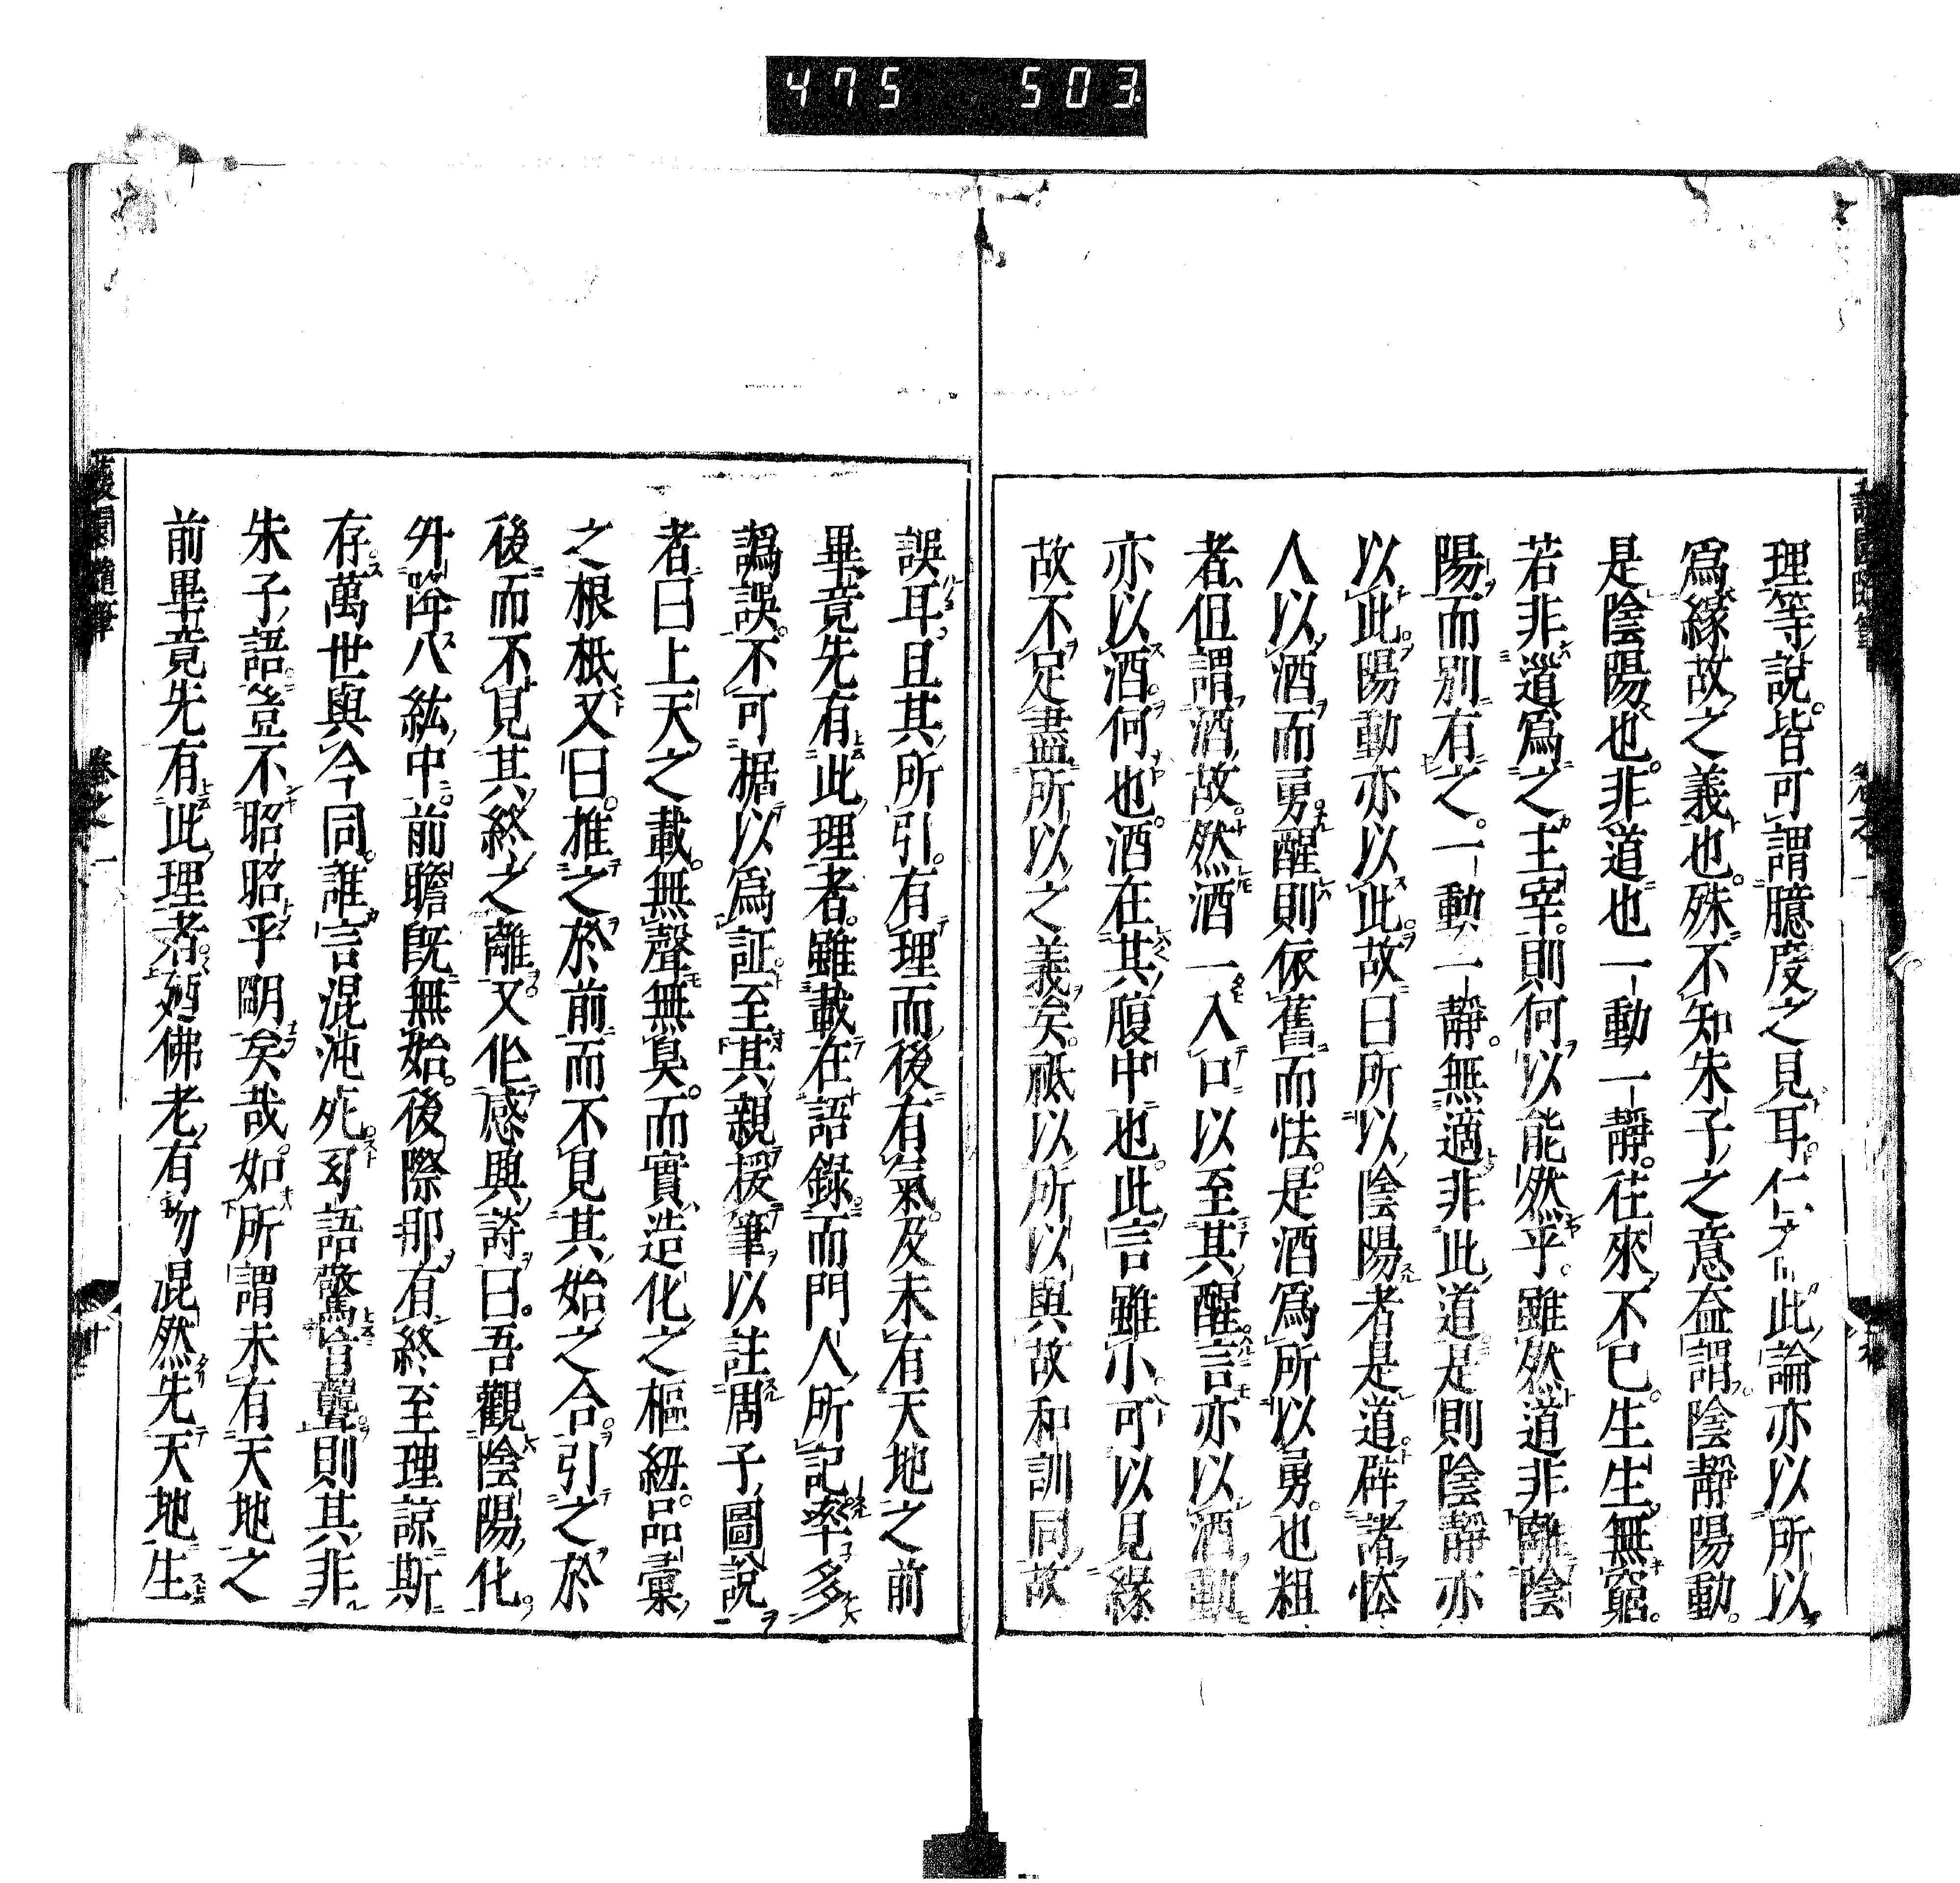 475 503
理等說。皆可謂臆度之見耳。仁才此論亦以所以
爲緣故之義也。殊不知朱子之意。益謂陰靜陽動。
是陰陽也。非道也。一動一靜。往來不已。生生無窮。
若非道爲之主宰。則何以能然乎。雖然道非離陰
陽而別有之。一動一靜。無適非此道。是則陰靜亦
以此。陽動亦以此。故曰所以陰陽者是道。辟諸怯
人以酒而勇。醒則依舊而怯。是酒爲所以勇也。粗
者但謂酒故。然酒一入口以至其醒。言亦以酒。動
亦以酒。何也。酒在其腹中也。此言雖小。可以見緣
故不足盡所以之義矣。祗以所以與故和訓同。故
誤耳。且其所引。有理而後有氣。及未有天地之前
畢竟先有此理者。雖載在語錄。而門人所記。率多
譌誤。不可据以爲証。至其親援筆以註周子圖說
者。曰上天之載。無聲無臭。而實造化之樞紐。品彙
之根柢。又曰。推之於前而不見其始之合。引之於
後而不見其終之離。又作感興詩曰。吾觀陰陽化。
升降八紘中。前瞻旣無始。後際那有終。至理諒斯
存。萬世與今同。誰言混沌死。幻語驚盲聾。則其非
朱子語。豈不昭昭乎明矣哉。如所謂未有天地之
前畢竟先有此理者。廼佛老有物混然先天地生
蘐園隨筆 卷之一